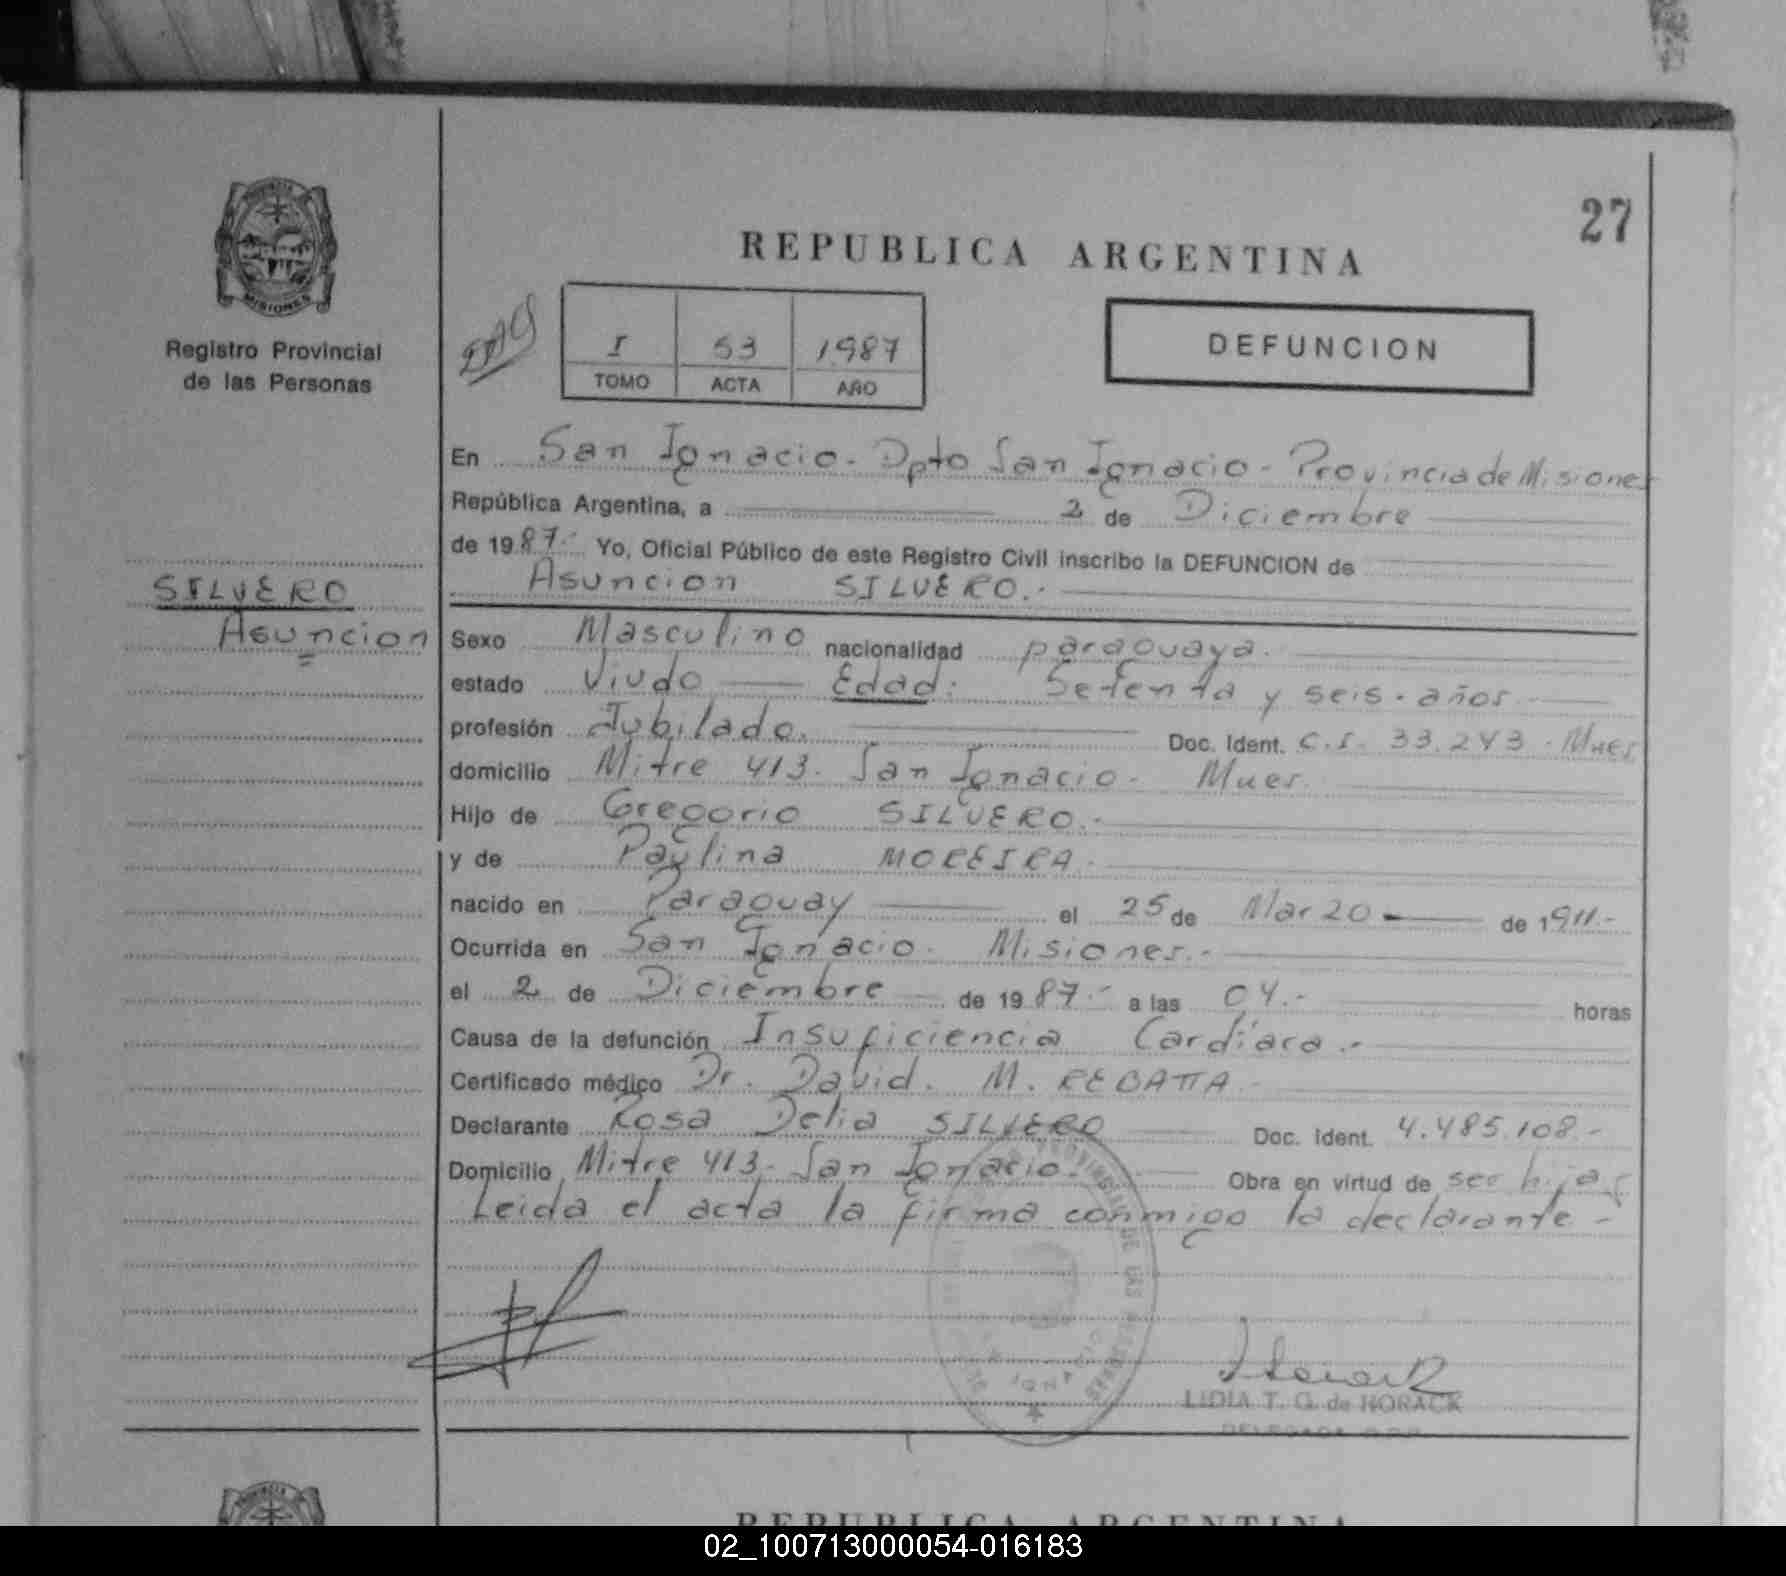 27
REPUBLICA ARGENTINA
PROVINCIA
MISIONES
Registro Provincial
de las Personas
I 53 1.987
TOMO ACTA AÑO
DEFUNCION
En San Ignacio - Dpto San Ignacio - Provincia de Misiones
República Argentina, a 2 de Diciembre
de 1987.- Yo, Oficial Público de este Registro Civil inscribo la DEFUNCION de
Asuncion SILVERO.-
SILVERO
Asuncion
Sexo Masculino nacionalidad paraguaya.
estado Viudo Edad: Setenta y seis. años
profesión Jubilado. Doc. Ident. C.I. 33.243. Mnes
domicilio Mitre 413. San Ignacio - Mnes.
Hijo de Gregorio SILVERO.-
y de Paulina MOREIRA.-
nacido en Paraguay el 25 de Marzo de 1911.-
Ocurrida en San Ignacio. Misiones.-
el 2 de Diciembre de 1987.- a las 04.- horas
Causa de la defunción Insuficiencia Cardíaca.-
Certificado médico Dr. David. M. REBATTA
Declarante Rosa Delia SILVERO Doc. Ident. 4.485.108.-
Domicilio Mitre 413. San Ignacio. Obra en virtud de ser hija
Leida el acta la firma conmigo la declarante -
LIDIA T. G. de HORACK
REPUBLICA ARGENTINA
02_100713000054-016183